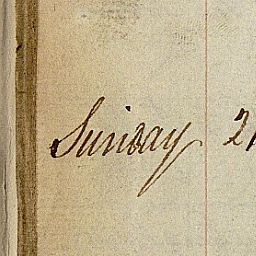 Sunday 21